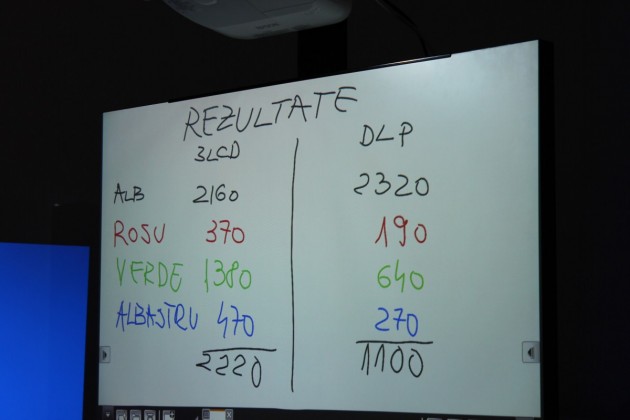 REZULTATE
3LCD DLP
ALB 2160 2320
ROSU 370 190
VERDE 1380 640
ALBASTRU 470 270
2220 1100